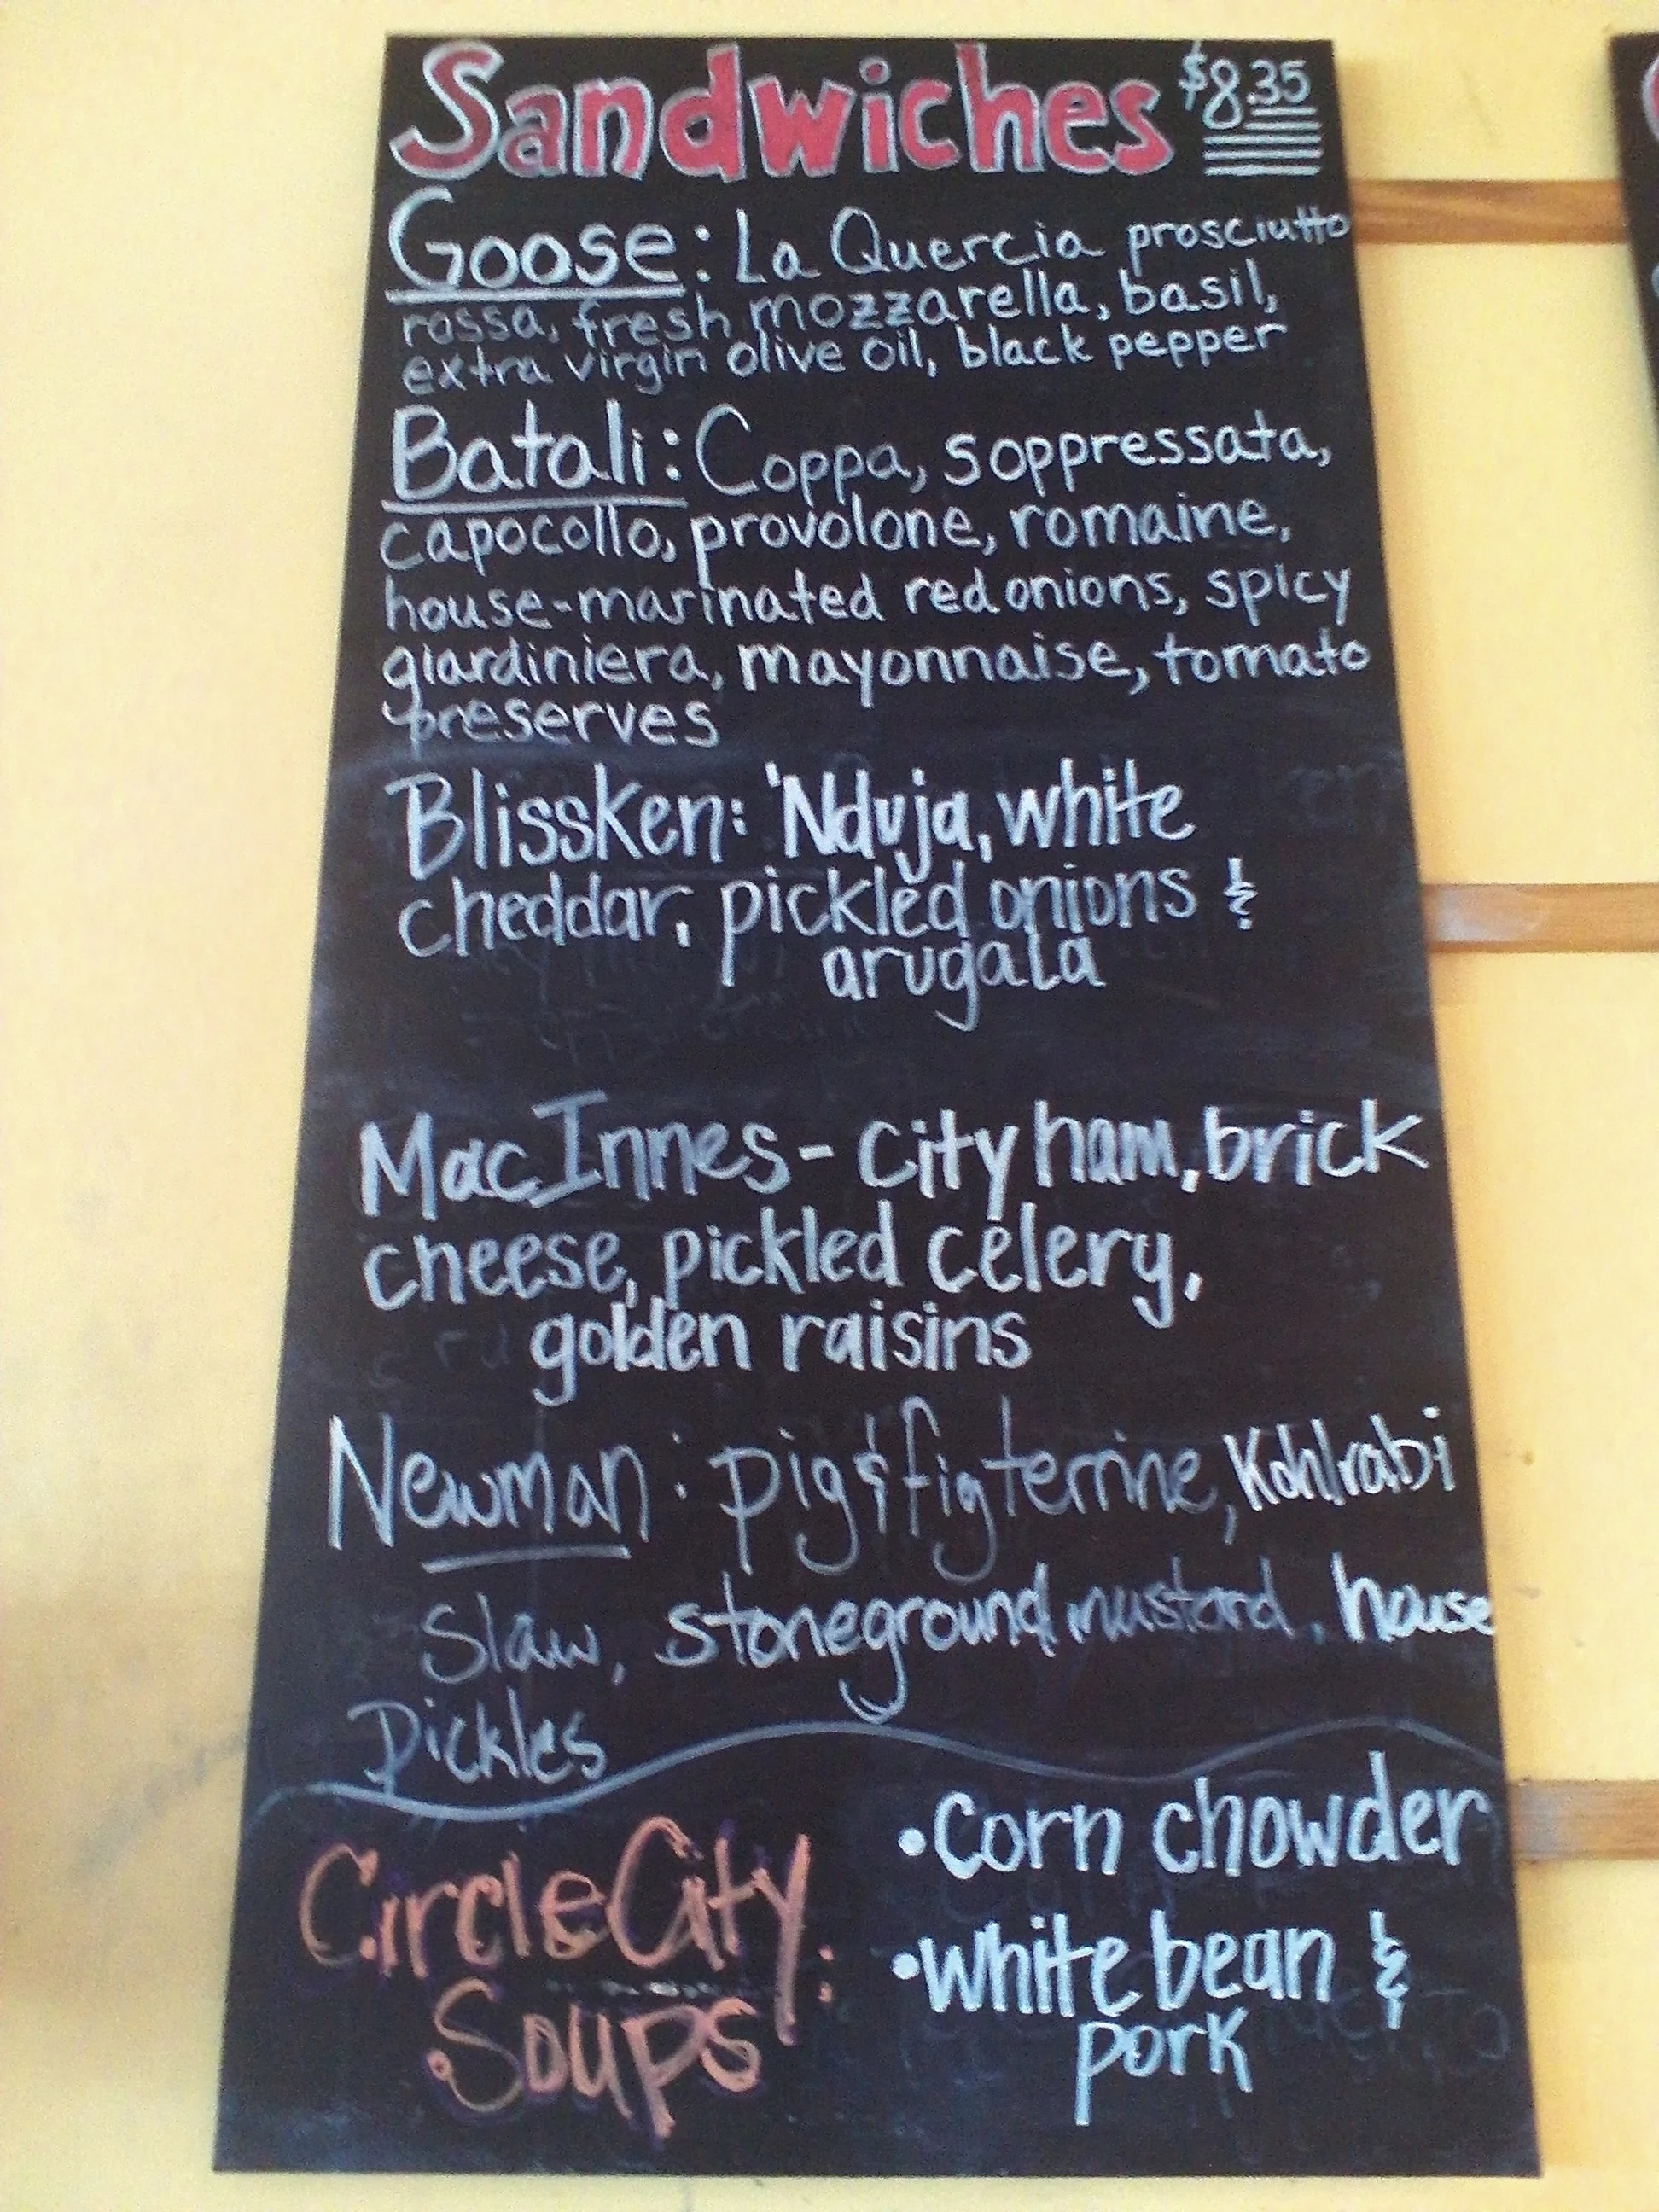 Sandwiches $8.35
Goose: La Quercia prosciutto
rossa, fresh mozzarella, basil,
extra virgin olive oil, black pepper
Batali: Coppa, soppressata,
capocollo, provolone, romaine,
house-marinated red onions, spicy
giardiniera, mayonnaise, tomato
preserves
Blissken: 'Nduja, white
cheddar, pickled onions &
arugala
MacInnes - city ham, brick
cheese, pickled celery,
golden raisins
Newman: pig & fig terrine, Kohlrabi
Slaw, stoneground mustard, house
Pickles
Circle City
Soups:
• corn chowder
• white bean &
pork